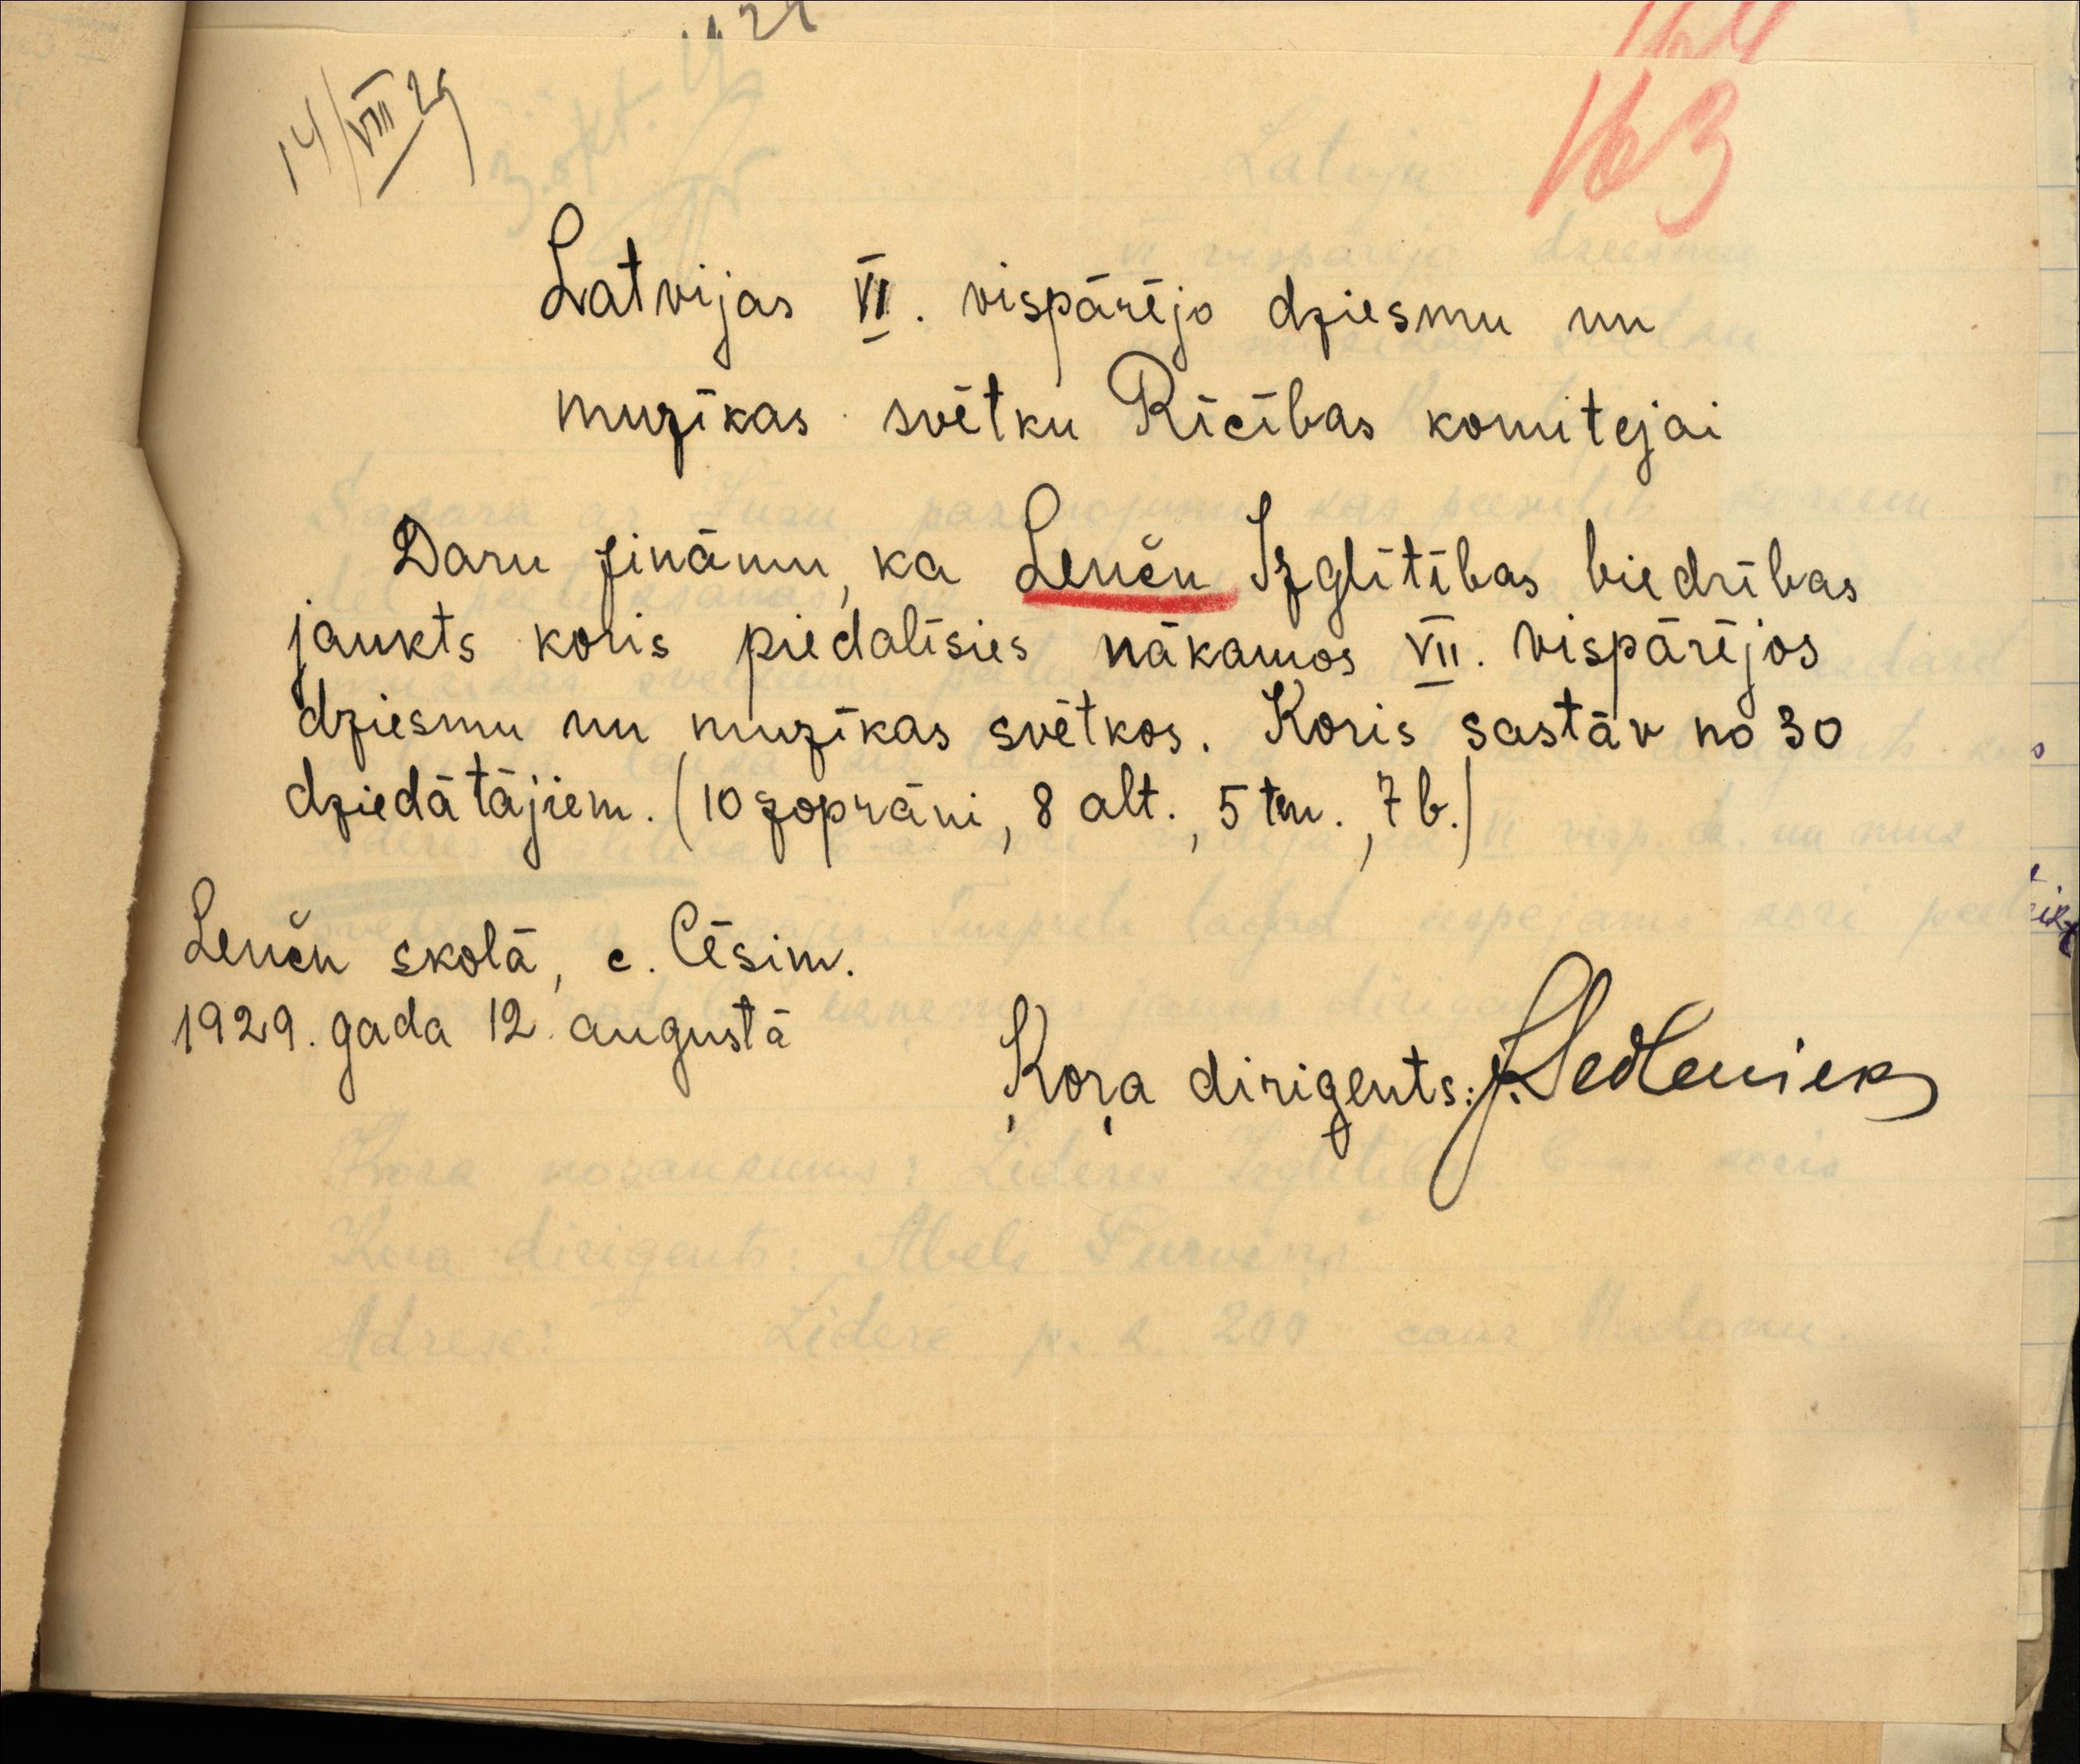 14/VIII 29
163
Latvijas VI. vispārējo dziesmu un
muzīkas svētku Rīcības komitejai
Daru zināmu, ka Lenču Izglītības biedrības
jaukts koris piedalīsies nākamos VII. vispārējos
dziesmu un muzīkas svētkos. Koris sastāv no 30
dziedātājiem. (10 zoprāni, 8 alt., 5 ten., 7 b.)
Lenču skolā, c. Cēsim.
1929. gada 12. augustā
Ķoŗa dirigents: J. Sedlenieks